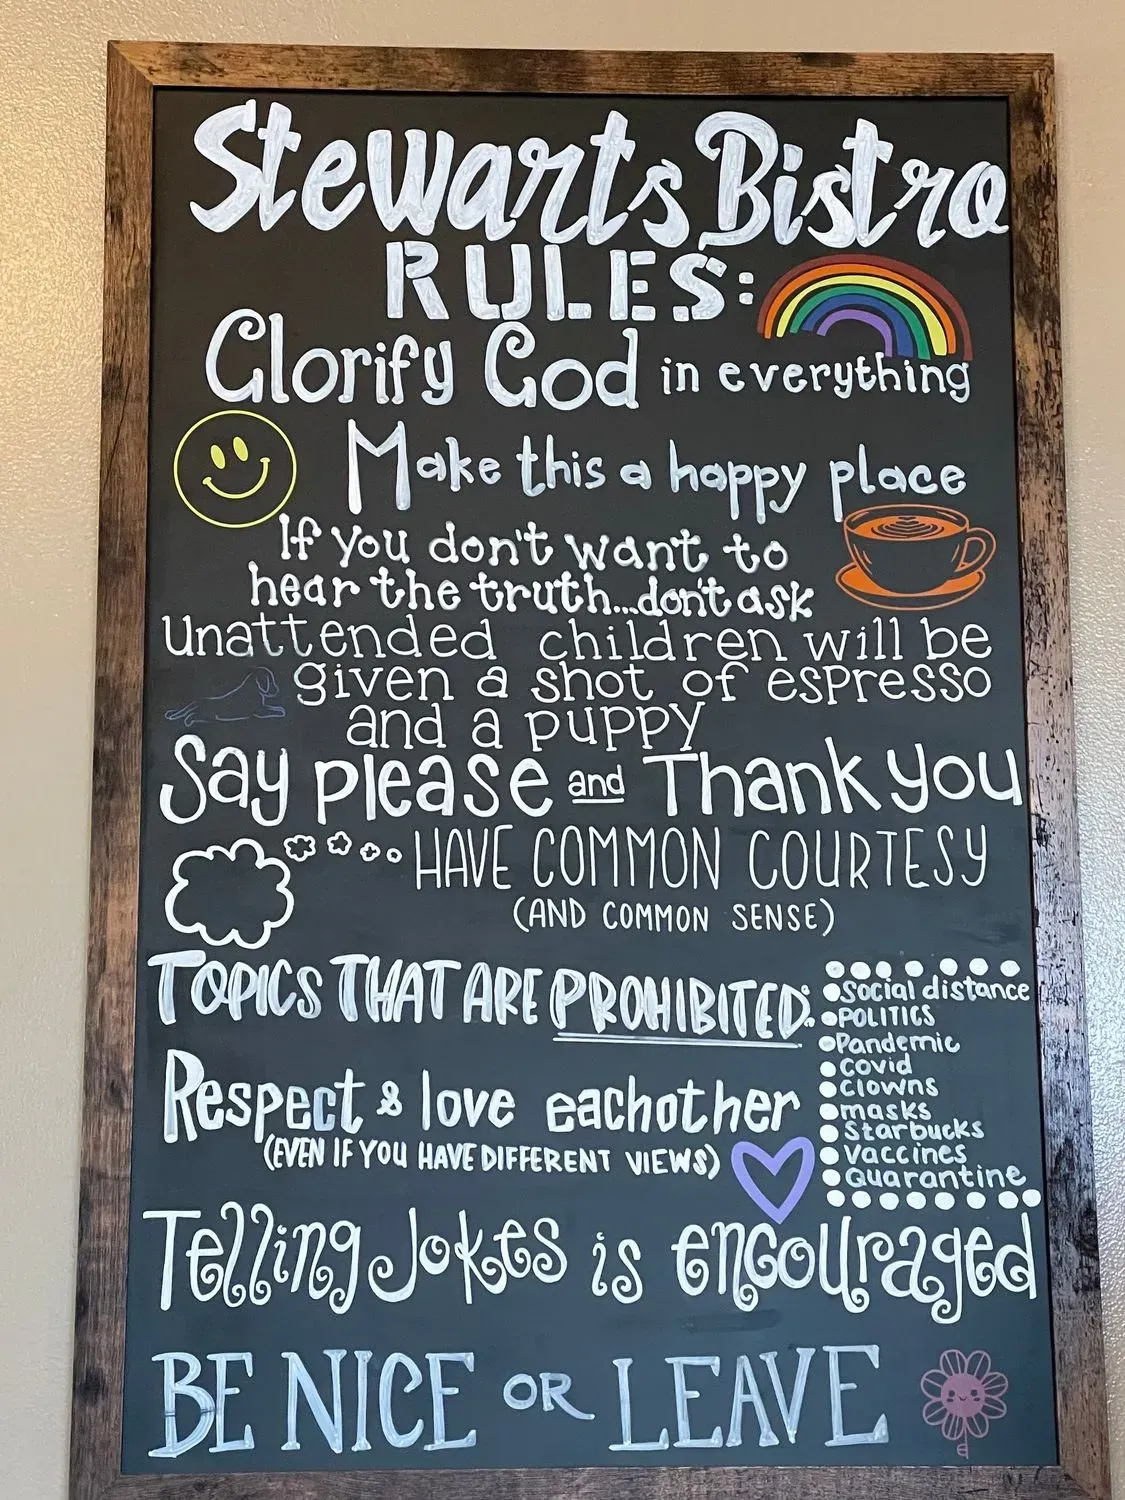 Stewarts Bistro
RULES:
Glorify God in everything
Make this a happy place
If you don't want to
hear the truth...don't ask
unattended children will be
given a shot of espresso
and a puppy
Say please and Thank you
HAVE COMMON COURTESY
(AND COMMON SENSE)
TOPICS THAT ARE PROHIBITED:
Social distance
POLITICS
Pandemic
Covid
clowns
masks
Starbucks
vaccines
Quarantine
Respect & love eachother
(EVEN IF YOU HAVE DIFFERENT VIEWS)
Telling Jokes is encouraged
BE NICE OR LEAVE